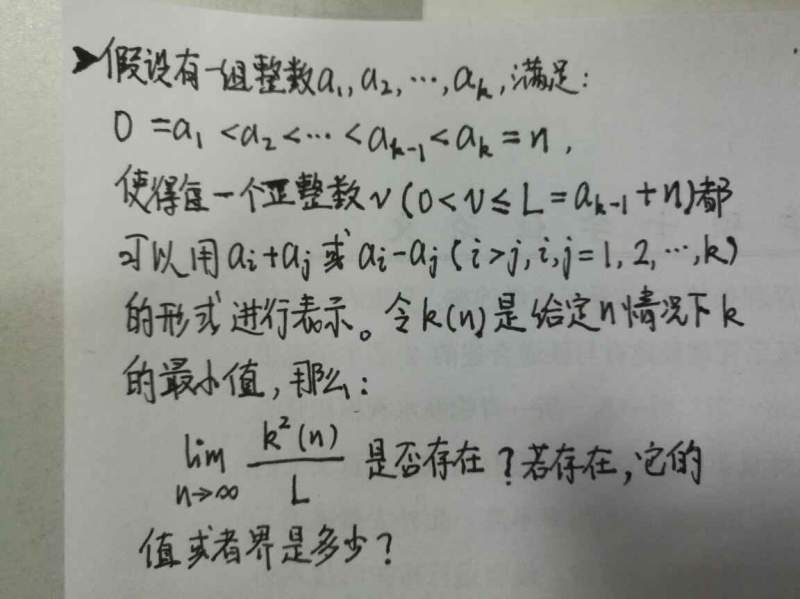 ➤假设有一组整数a₁,a₂,…,aₖ,满足:
0=a₁<a₂<…<aₖ₋₁<aₖ=n,
使得每一个正整数v(0<v≤L=aₖ₋₁+n)都
可以用aᵢ+aⱼ或aᵢ-aⱼ(i>j,i,j=1,2,…,k)
的形式进行表示。令k(n)是给定n情况下k
的最小值,那么:
lim n→∞ k²(n)/L 是否存在?若存在,它的
值或者界是多少?